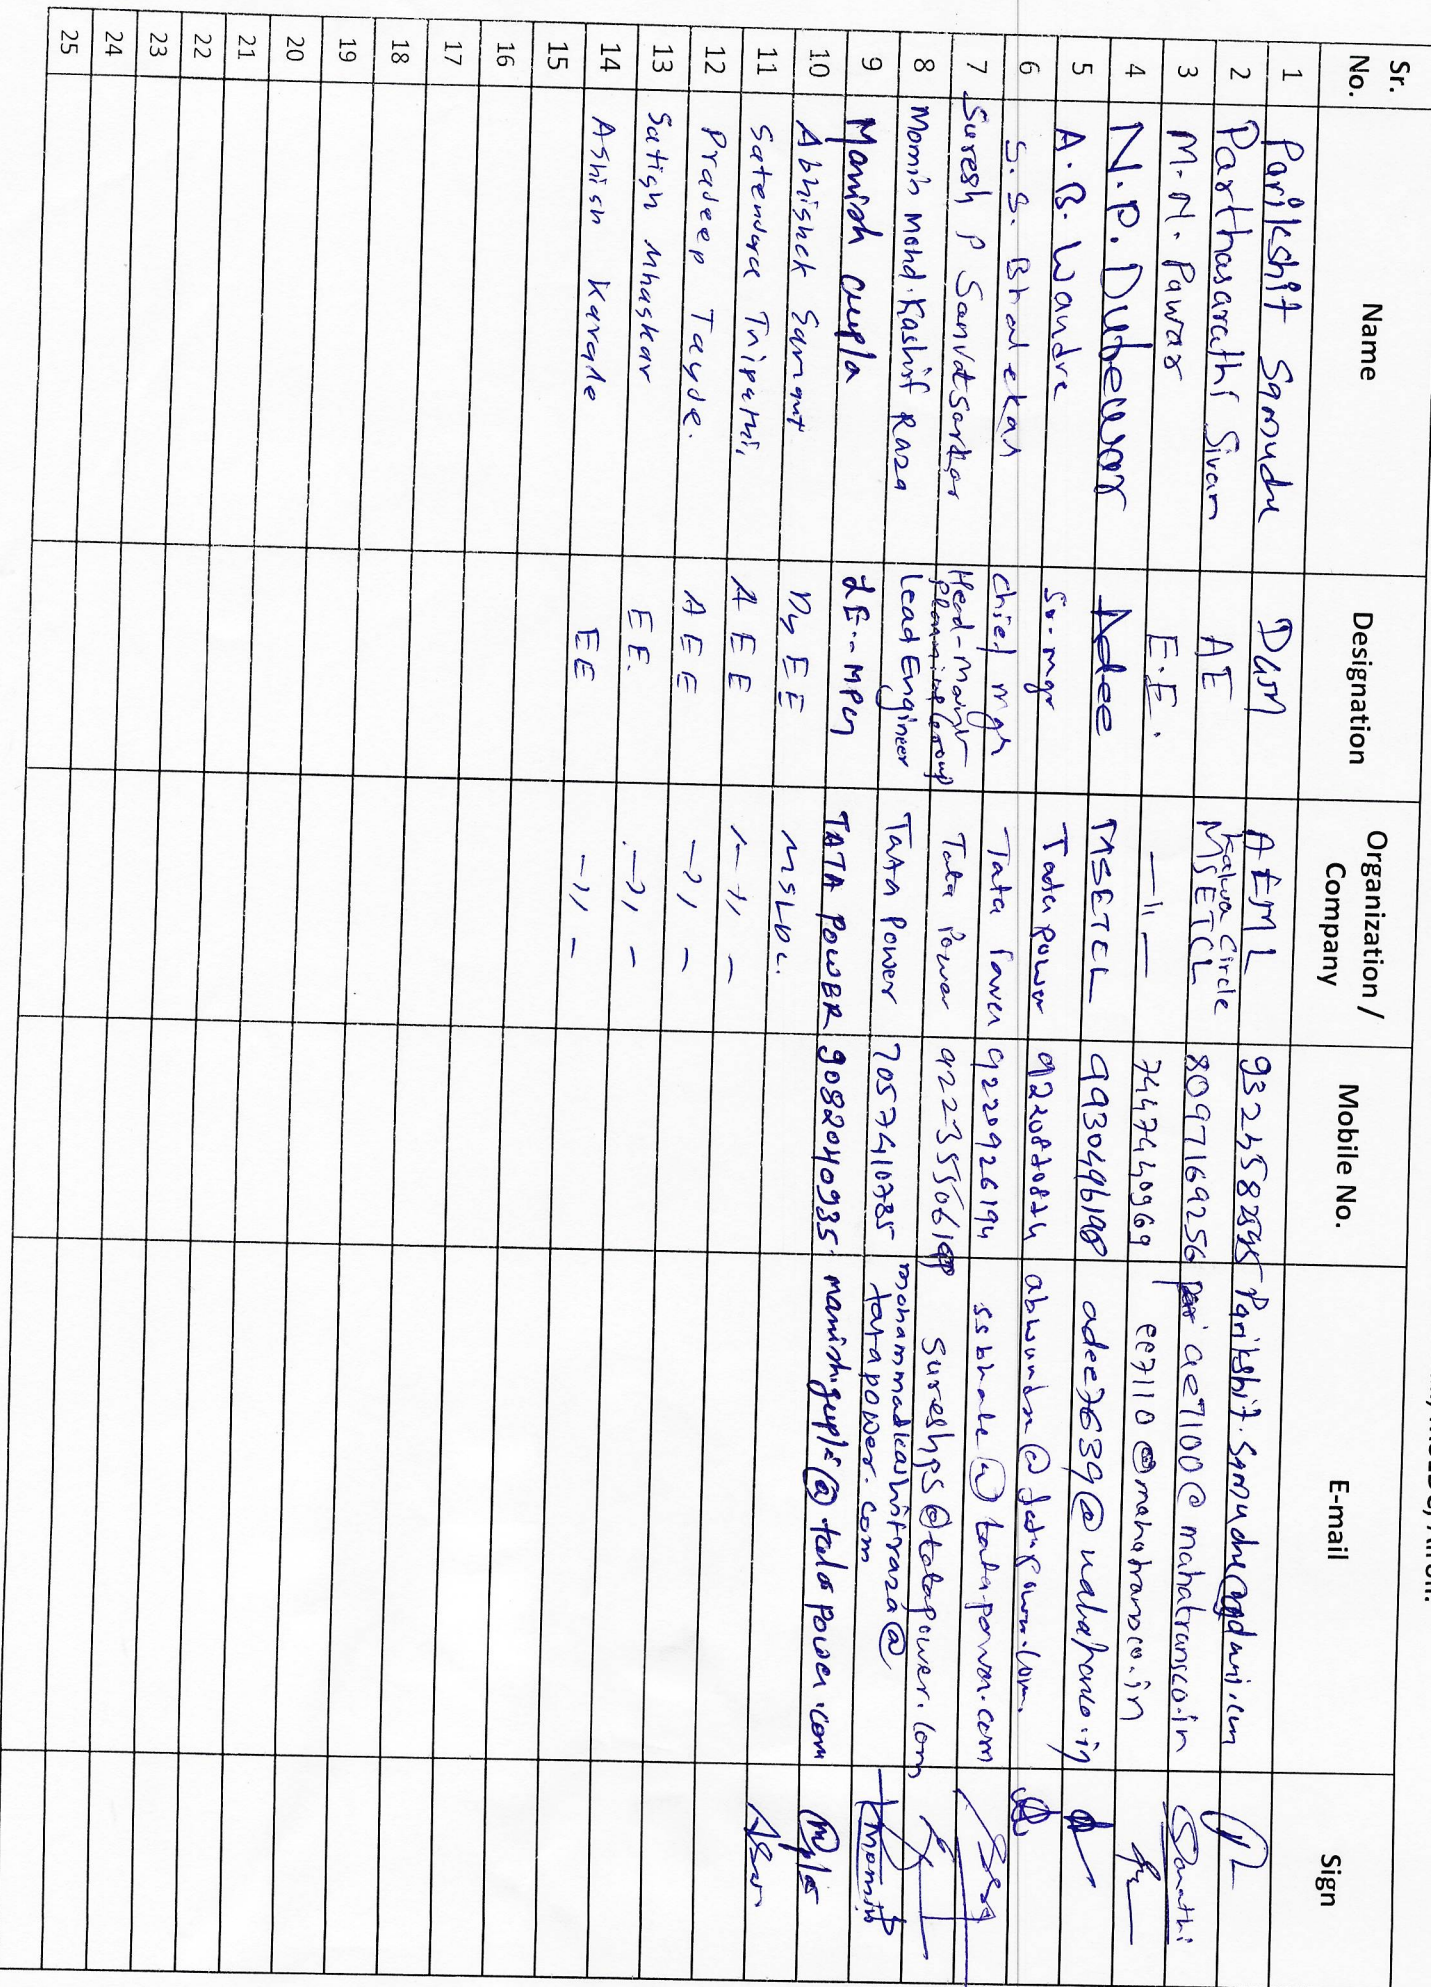 MSLDC, Airoli.
Sr. No. Name Designation Organization / Company Mobile No. E-mail Sign
1 Parikshit Samudre DGM AEML Parikshit.Samudre@adani.com
2 Parthasarathi Sivam AE Kalwa Circle MSETCL 8097169256 ae7100@mahatransco.in
3 M.N. Pawar E.E. —"— 7447440969 ee7110@mahatransco.in
4 N.P. Dubewar Adee MSETCL adee7639@mahatransco.in
5 A.B. Wandre Sr. mgr Tata power 9220870874 abwandre@tatapower.com.
6 S.S. Bhalekar Chief mgr Tata Power 9220926194 ssbhale@tatapower.com
7 Suresh P Sanvatsarkar Head-Maint Planning Group Tata Power sureshps@tatapower.com
8 Momin Mohd.Kashif Raza Lead Engineer Tata Power 7057410785 mohammadkashifraza@
tatapower.com Momin
9 Manish Gupta LE--MPG TATA POWER 9082040935 manishgupta@tatapower.com
10 Abhishek Samant Dy EE MSLDC.
11 Satendra Tripathi, AEE —"—
12 Pradeep Tayde. AEE —"—
13 Satish Mhaskar EE. —"—
14 Ashish Karade EE —"—
15
16
17
18
19
20
21
22
23
24
25